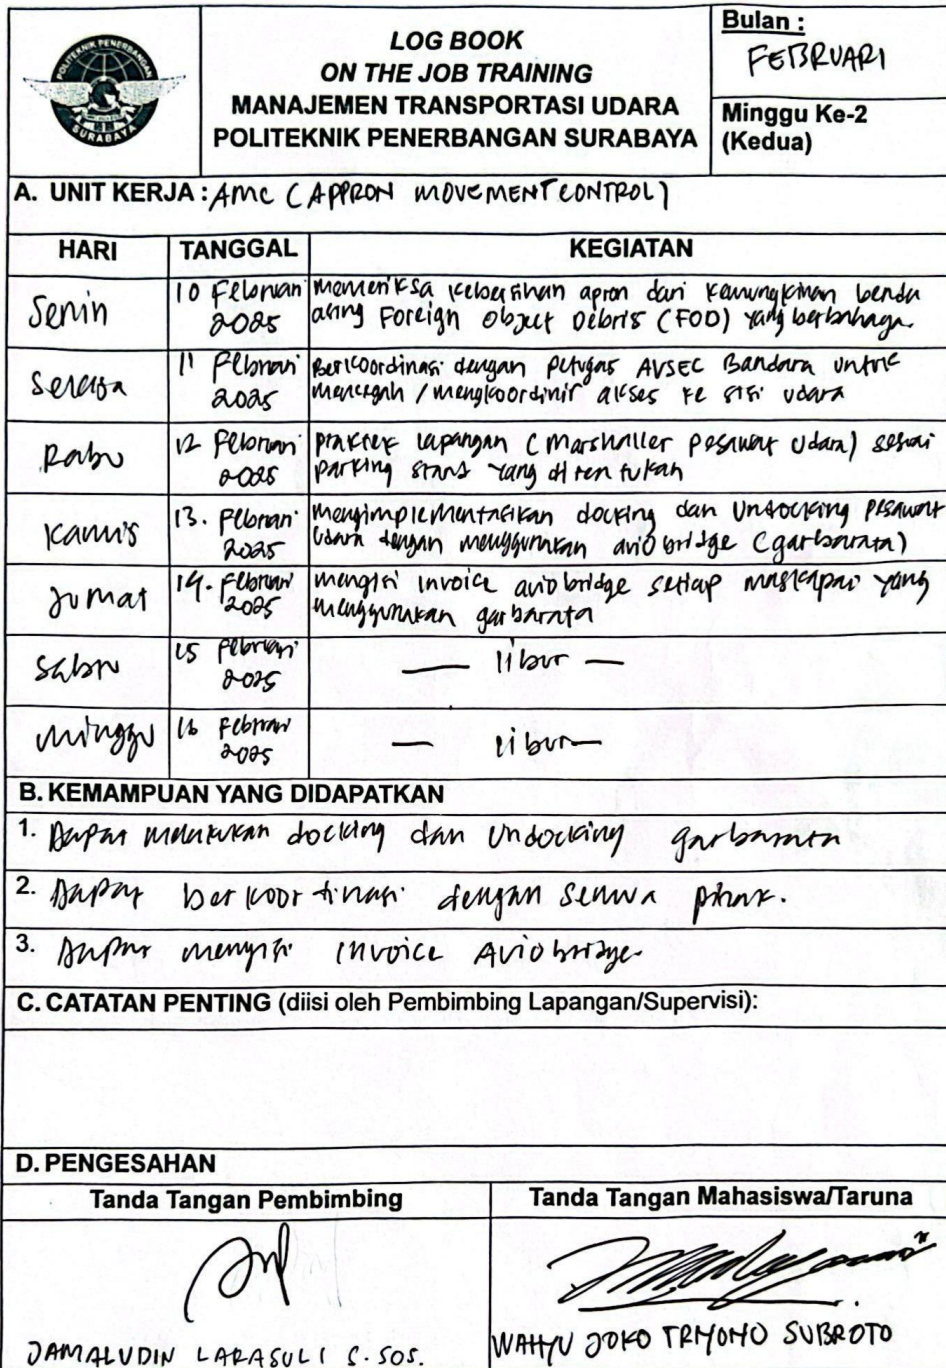 POLITEKNIK PENERBANGAN
SURABAYA
LOG BOOK
ON THE JOB TRAINING
MANAJEMEN TRANSPORTASI UDARA
POLITEKNIK PENERBANGAN SURABAYA
Bulan :
FEBRUARI
Minggu Ke-2
(Kedua)
A. UNIT KERJA : AMC (APPRON MOVEMENT CONTROL)
HARI TANGGAL KEGIATAN
Senin 10 Februari 2025 memeriksa kebersihan apron dari kemungkinan benda
asing Foreign Object Debris (FOD) yang berbahaya.
Selasa 11 Februari 2025 Berkoordinasi dengan petugas AVSEC Bandara untuk
mencegah / mengkoordinir akses ke sisi udara
Rabu 12 Februari 2025 praktek lapangan (Marshaller pesawat udara) sesuai
parking stand yang di tentukan
Kamis 13. Februari 2025 mengimplementasikan docking dan undocking pesawat
udara dengan menggunakan aviobridge (garbarata)
Jumat 14. Februari 2025 mengisi invoice aviobridge setiap maskapai yang
menggunakan garbarata
Sabtu 15 Februari 2025 — libur —
minggu 16 Februari 2025 — libur —
B. KEMAMPUAN YANG DIDAPATKAN
1. Dapat melakukan docking dan undocking garbarata
2. Dapat berkoordinasi dengan semua pihak.
3. Dapat mengisi invoice Aviobridge.
C. CATATAN PENTING (diisi oleh Pembimbing Lapangan/Supervisi):
D. PENGESAHAN
Tanda Tangan Pembimbing Tanda Tangan Mahasiswa/Taruna
JAMALUDIN LARASULI S.SOS. WAHYU JOKO TRIYONO SUBROTO